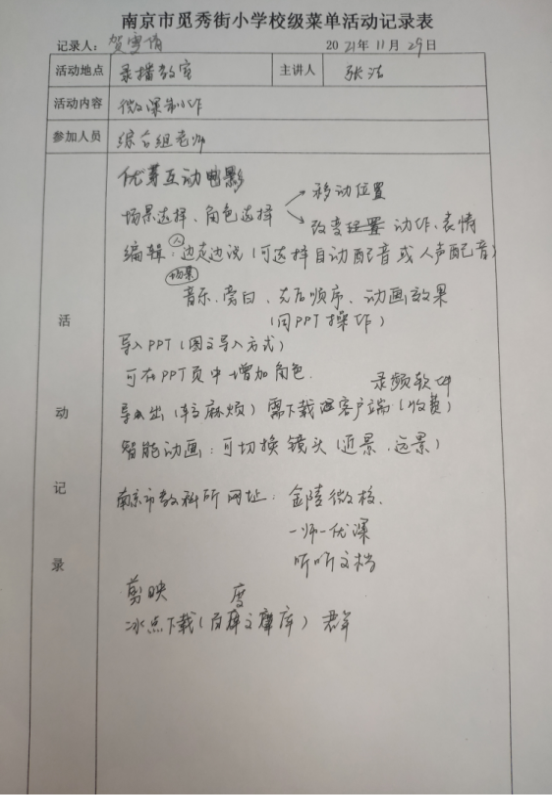 南京市觅秀街小学校级菜单活动记录表
记录人：贺雪倩 2021年11月29日
活动地点 录播教室 主讲人 张洁
活动内容 微课制作
参加人员 综合组老师
活动记录
优芽互动电影
场景选择、角色选择 → 移动位置
→ 改变 动作、表情
编辑：人 边走边说（可选择自动配音或人声配音）
场景
音乐、旁白、先后顺序、动画效果
（同PPT操作）
导入PPT（图文导入方式）
可在PPT页中增加角色.
录频软件
导出（较麻烦）需下载 客户端（收费）
智能动画：可切换镜头（近景、远景）
南京市教科所网址：金陵微校.
一师一优课
听听文档
剪映
冰点下载（百度文库） 群